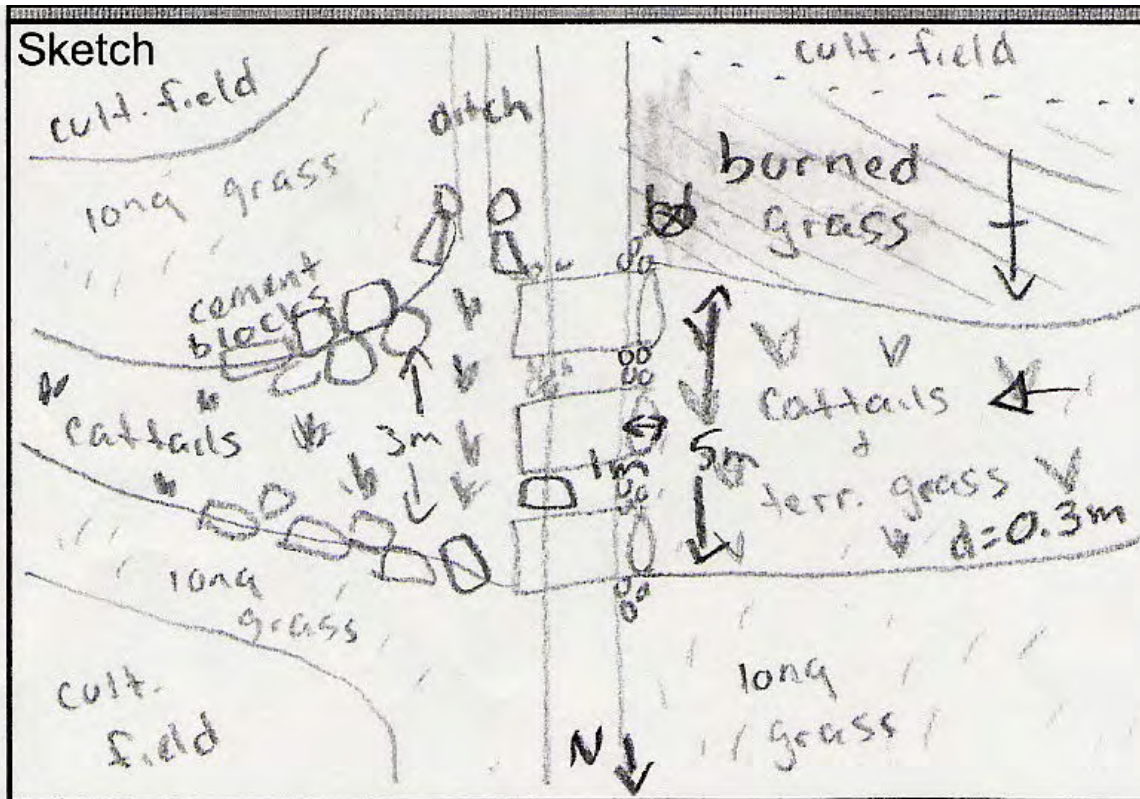 Sketch
cult. field
ditch
cult. field
long grass
burned
grass
cement
blocks
cattails
3m
1m
5m
cattails
+
terr. grass
d=0.3m
long
grass
cult.
field
long
grass
N